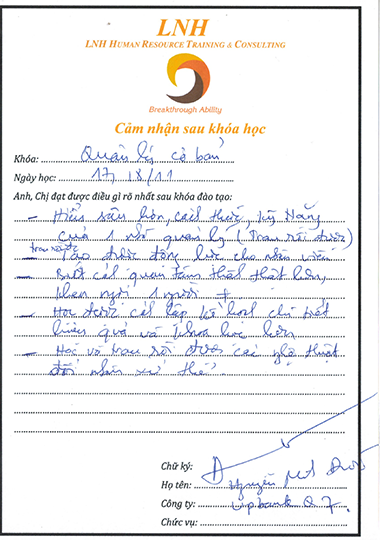 LNH
LNH HUMAN RESOURCE TRAINING & CONSULTING
Breakthrough Ability
Cảm nhận sau khóa học
Khóa: Quản lý cơ bản
Ngày học: 17, 18/11
Anh, Chị đạt được điều gì rõ nhất sau khóa đào tạo:
- Hiểu sâu hơn, cách thức, kỹ năng
của 1 nhà quản lý (trau dồi được)
- Tạo được động lực cho nhân viên
- Biết cách quan tâm thật hơn,
khen ngợi 1 người
- Học được cách lập kế hoạch
hiệu quả và khoa học hơn
- Học và trau dồi được các nghệ thuật
đối nhân xử thế
Chữ ký:
Họ tên: Nguyễn
Công ty: Vpbank Q 7.
Chức vụ: